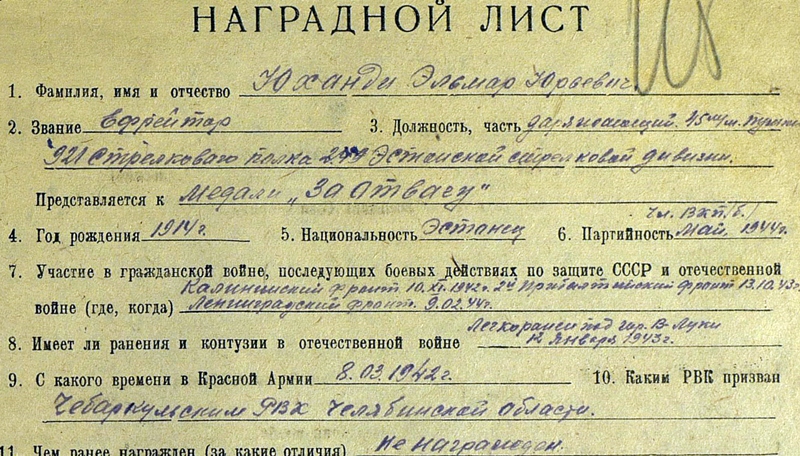 НАГРАДНОЙ ЛИСТ
1. Фамилия, имя и отчество Юханди Эльмар Юрьевич
2. Звание Ефрейтор 3. Должность, часть 45 мм. пушки
921 Стрелкового полка 249 Эстонской стрелковой дивизии.
Представляется к Медали „За отвагу"
чл. ВКП/б/
4. Год рождения 1914 г. 5. Национальность Эстонец 6. Партийность Май, 1944 г.
7. Участие в гражданской войне, последующих боевых действиях по защите СССР и отечественной
Калининский фронт 10.XI.1942 г. 2й Прибалтийский фронт 13.10.43 г.
войне (где, когда) Ленинградский фронт. 9.02.44 г.
Легко ранен под гор. В-Луки
8. Имеет ли ранения и контузии в отечественной войне Января 1943 г.
9. С какого времени в Красной Армии 8.03.1942 г. 10. Каким РВК призван
Чебаркульским РВК Челябинской области.
11. Чем ранее награжден (за какие отличия) Не награжден.